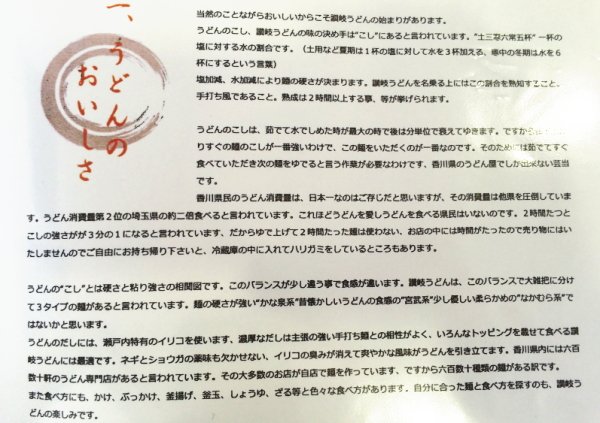 一、うどんのおいしさ
当然のことながらおいしいからこそ讃岐うどんの始まりがあります。
うどんのこし、讃岐うどんの味の決め手は"こし"にあると言われています。"土三寒六常五杯" 一杯の
塩に対する水の割合です。（土用など夏期は１杯の塩に対して水を３杯加える、寒中の冬期は水を６
杯にするという言葉）
塩加減、水加減により麺の硬さが決まります。讃岐うどんを名乗る上にはこの割合を熟知すること、
手打ち風であること。熟成は２時間以上する事、等が挙げられます。
うどんのこしは、茹でて水でしめた時が最大の時で後は分単位で衰えてゆきます。ですから
りすぐの麺のこしが一番強いわけで、この麺をいただくのが一番なのです。そのためには茹でてすぐ
食べていただき次の麺をゆでると言う作業が必要なわけです、香川県のうどん屋でしか出来ない芸当
です。
香川県民のうどん消費量は、日本一なのはご存じだと思いますが、その消費量は他県を圧倒していま
す。うどん消費量第２位の埼玉県の約二倍食べると言われています。これほどうどんを愛しうどんを食べる県民はいないのです。２時間たつと
こしの強さがが３分の１になると言われています、だからゆで上げて２時間たった麺は使わない、お店の中には時間がたったので売り物にはい
たしませんのでご自由にお持ち帰り下さいと、冷蔵庫の中に入れてハリガミをしているところもあります。
うどんの"こし"とは硬さと粘り強さの相関図です。このバランスが少し違う事で食感が違います。讃岐うどんは、このバランスで大雑把に分け
て３タイプの麺があると言われています。麺の硬さが強い"かな泉系"昔懐かしいうどんの食感の"宮武系"少し優しい柔らかめの"なかむら系"で
はないかと思います。
うどんのだしには、瀬戸内特有のイリコを使います、濃厚なだしは主張の強い手打ち麺との相性がよく、いろんなトッピングを載せて食べる讃
岐うどんには最適です。ネギとショウガの薬味も欠かせない、イリコの臭みが消えて爽やかな風味がうどんを引き立てます。香川県内には六百
数十軒のうどん専門店があると言われています。その大多数のお店が自店で麺を作っています、ですから六百数十種類の麺がある訳です。
また食べ方にも、かけ、ぶっかけ、釜揚げ、釜玉、しょうゆ、ざる等と色々な食べ方があります。自分に合った麺と食べ方を探すのも、讃岐う
どんの楽しみです。